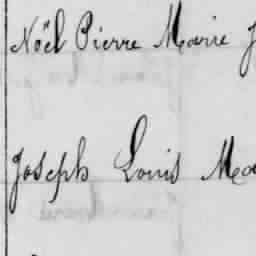 Noël Pierre Marie J
Joseph Louis Ma